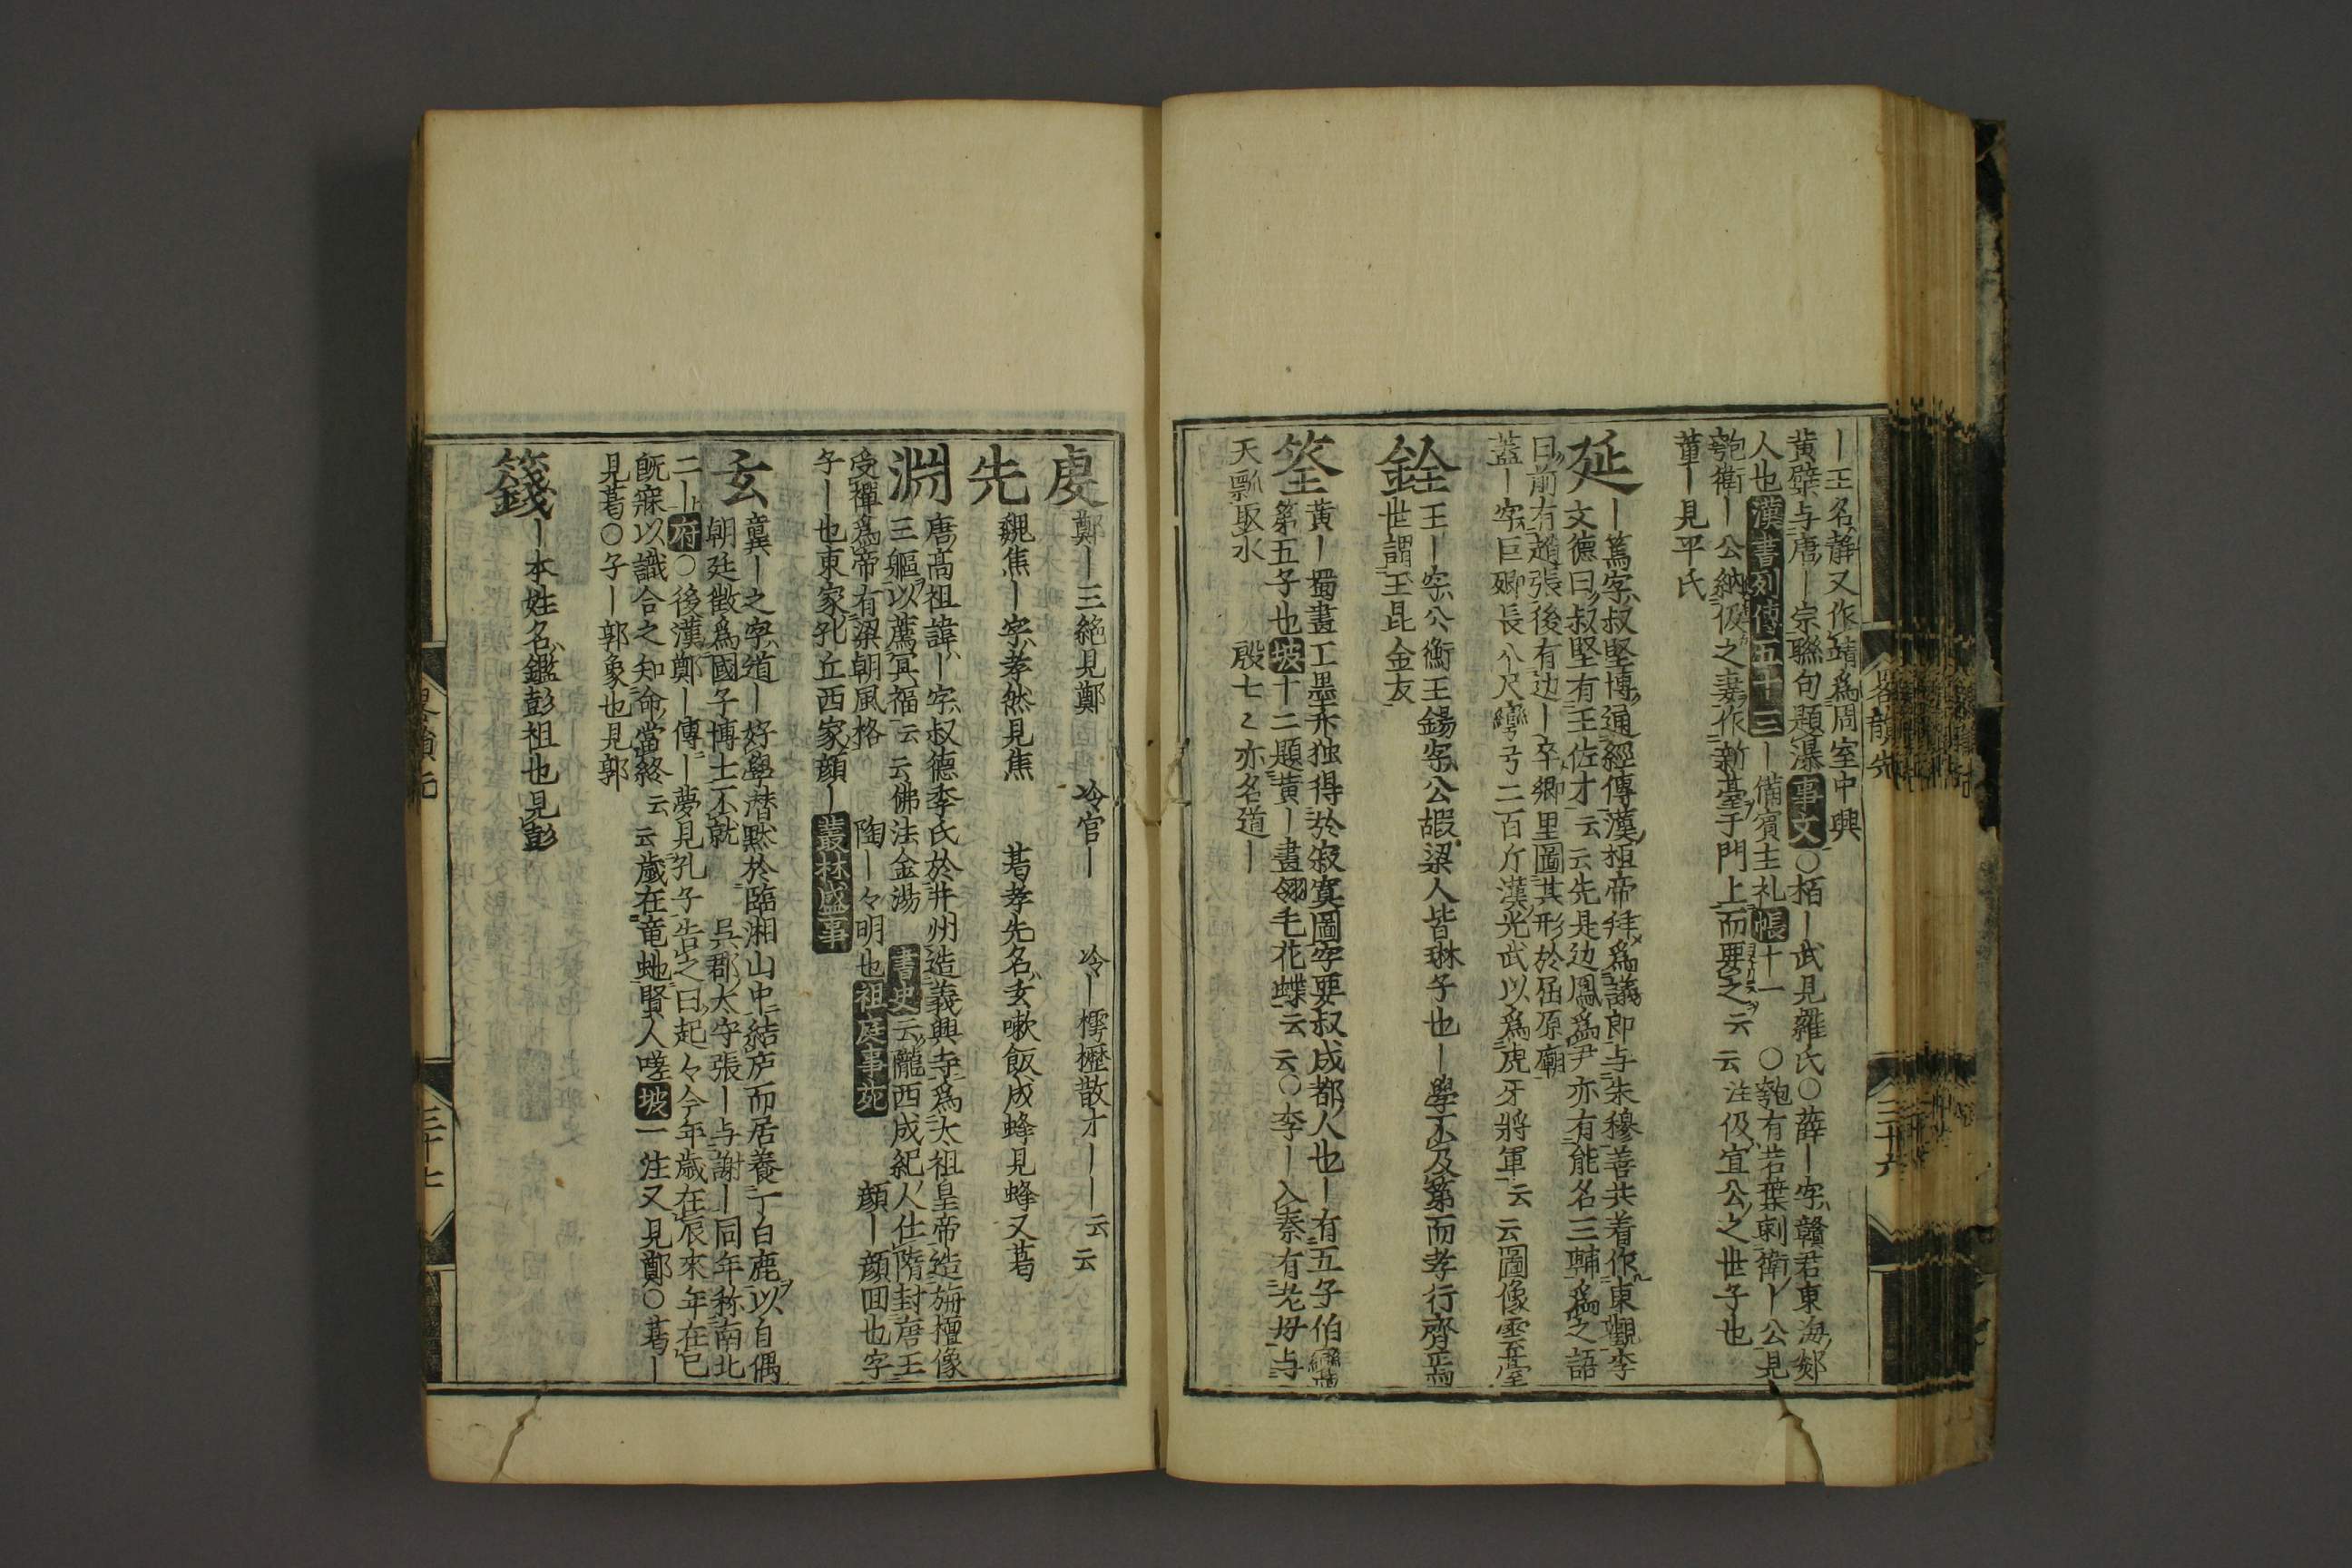 ｜王名静又作靖為周室中興
黄檗与唐｜宗聯句題瀑事文○栢｜武見羅氏○薛｜字贛君東海郯
人也漢書列傳五十三｜備賓主礼帳十一○匏有苦葉刺衛｜公見
匏衛｜公納伋之妻作新臺于門上而要之云云注伋宣公之世子也
董｜見平氏
延｜篤字叔堅博通經傳漢桓帝拜為議郎与朱穆善共着作東觀李
文德曰叔堅有王佐才云云先是边鳳為尹亦有能名三輔為之語
曰前有趙張後有边｜卒卿里圖其形於屈原廟
蓋｜字巨卿長八尺彎弓二百斤漢光武以為虎牙將軍云云圖像雲臺
銓王｜字公衡王錫字公嘏梁人皆琳子也｜學不及第而孝行齊焉
世謂王昆金友
筌黄｜蜀畫工墨亦独得於寂寞圖字要叔成都人也｜有五子伯
第五子也坡十二題黄｜畫翎毛花蝶云云○李｜入秦有老母与
天瓢取水　殷七々亦名道｜
畧韻先
三十六
虔鄭｜三絶見鄭　冷官｜　冷｜樗櫪散才｜｜云云
先魏焦｜字孝然見焦　葛孝先名玄嗽飯成蜂見蜂又葛
淵唐高祖諱｜字叔德李氏於并州造義興寺為太祖皇帝造旃檀像
三軀以薦冥福云云佛法金湯　書史云隴西成紀人仕隋封唐王
受禪為帝有梁朝風格　陶｜々明也祖庭事苑　顔｜顔回也字
子｜也東家孔丘西家顔｜叢林盛事
玄龔｜之字道｜好學潜黙於臨湘山中結庐而居養一丁白鹿以自偶
朝廷徴為國子博士不就　呉郡太守張｜与謝｜同年称南北
二｜府○後漢鄭｜傳｜夢見孔子告之曰起々今年歳在辰來年在巳
既寐以讖合之知命當終云云歳在竜虵賢人嗟坡一注又見鄭○葛｜
見葛○子｜郭象也見郭
籛｜本姓名鑑彭祖也見彭
三十七